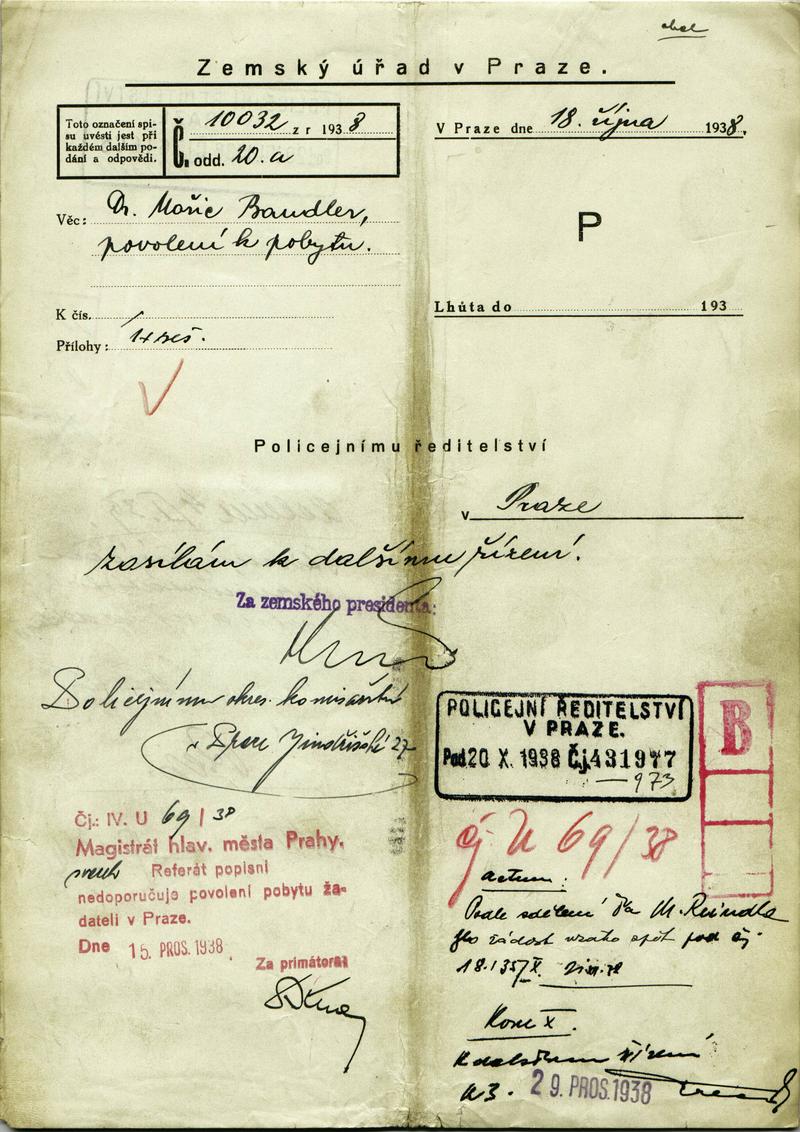 Zemský úřad v Praze.
Toto označení spi-
su uvésti jest při
každém dalším po-
dání a odpovědi.
Č. 10032 z r 1938
odd. 20.a
V Praze dne 18. října 1938.
Věc: Dr. Mořic Bandler,
povolení k pobytu.
P
Lhůta do 193
K čís.
Přílohy:
Policejnímu ředitelství
v Praze
zasílám k dalšímu řízení.
Za zemského presidenta:
Policejnímu okres. komisařství
v Praze Jindřišská 27
POLICEJNÍ ŘEDITELSTVÍ
V PRAZE.
Pod. 20 X. 1938 Čj. 431977
973
B
Čj.: IV. U 69/38
Magistrát hlav. města Prahy.
Referát popisní
nedoporučuje povolení pobytu ža-
dateli v Praze.
Dne 15. PROS. 1938.
Za primátora:
čj U 69/38
actum:
Podle sdělení Dra M. Reindla
žádost vzata zpět pod čj.
18.135/X.
Kom X.
K dalšímu řízení
29. PROS. 1938